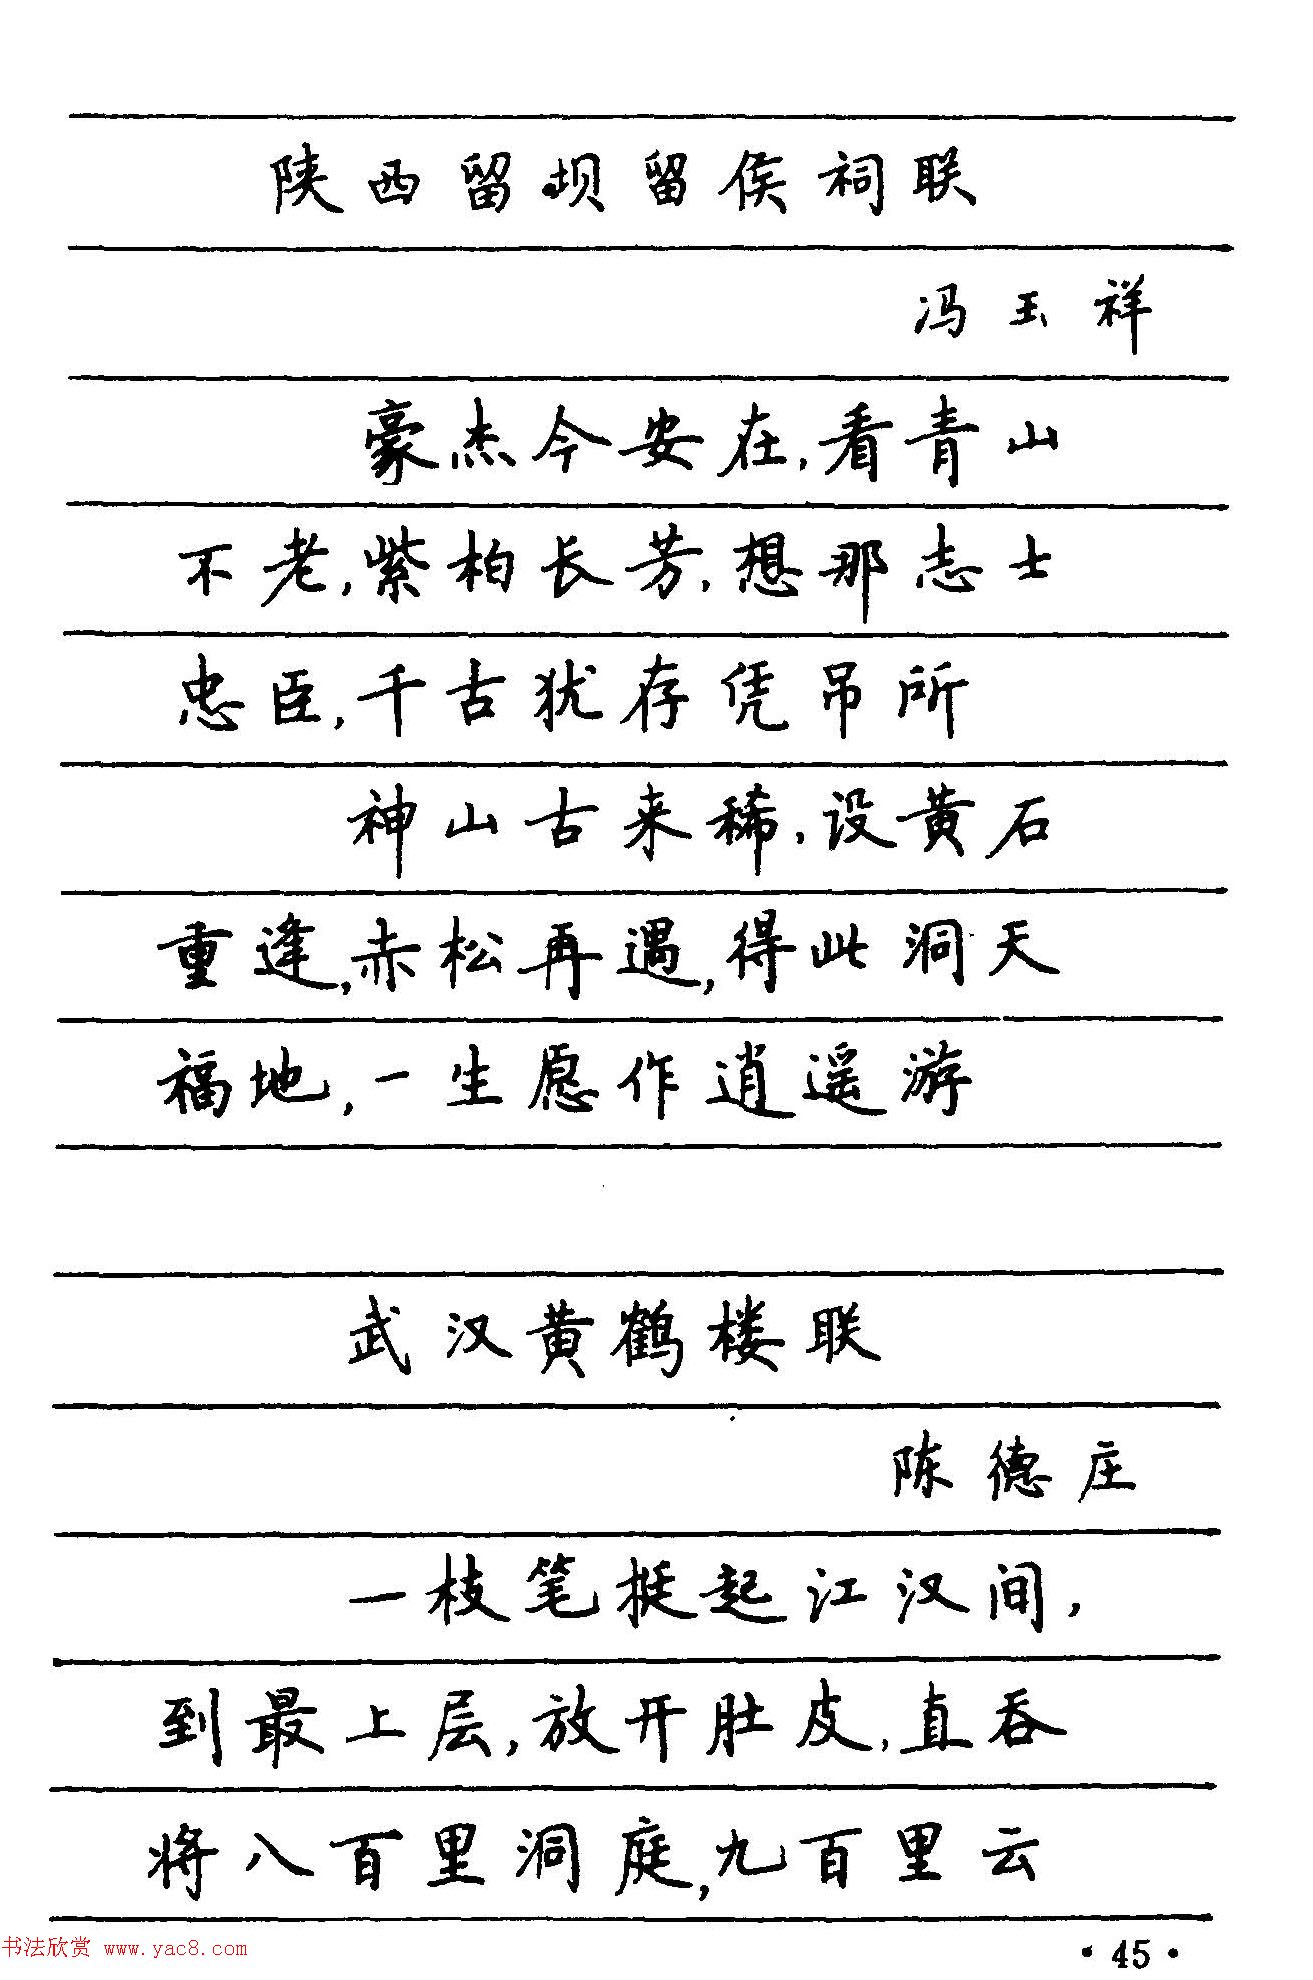 陕西留坝留侯祠联
冯玉祥
豪杰今安在,看青山
不老,紫柏长芳,想那志士
忠臣,千古犹存凭吊所
神山古来稀,设黄石
重逢,赤松再遇,得此洞天
福地,一生愿作逍遥游
武汉黄鹤楼联
陈德庄
一枝笔挺起江汉间,
到最上层,放开肚皮,直吞
将八百里洞庭,九百里云
书法欣赏 www.yac8.com
·45·